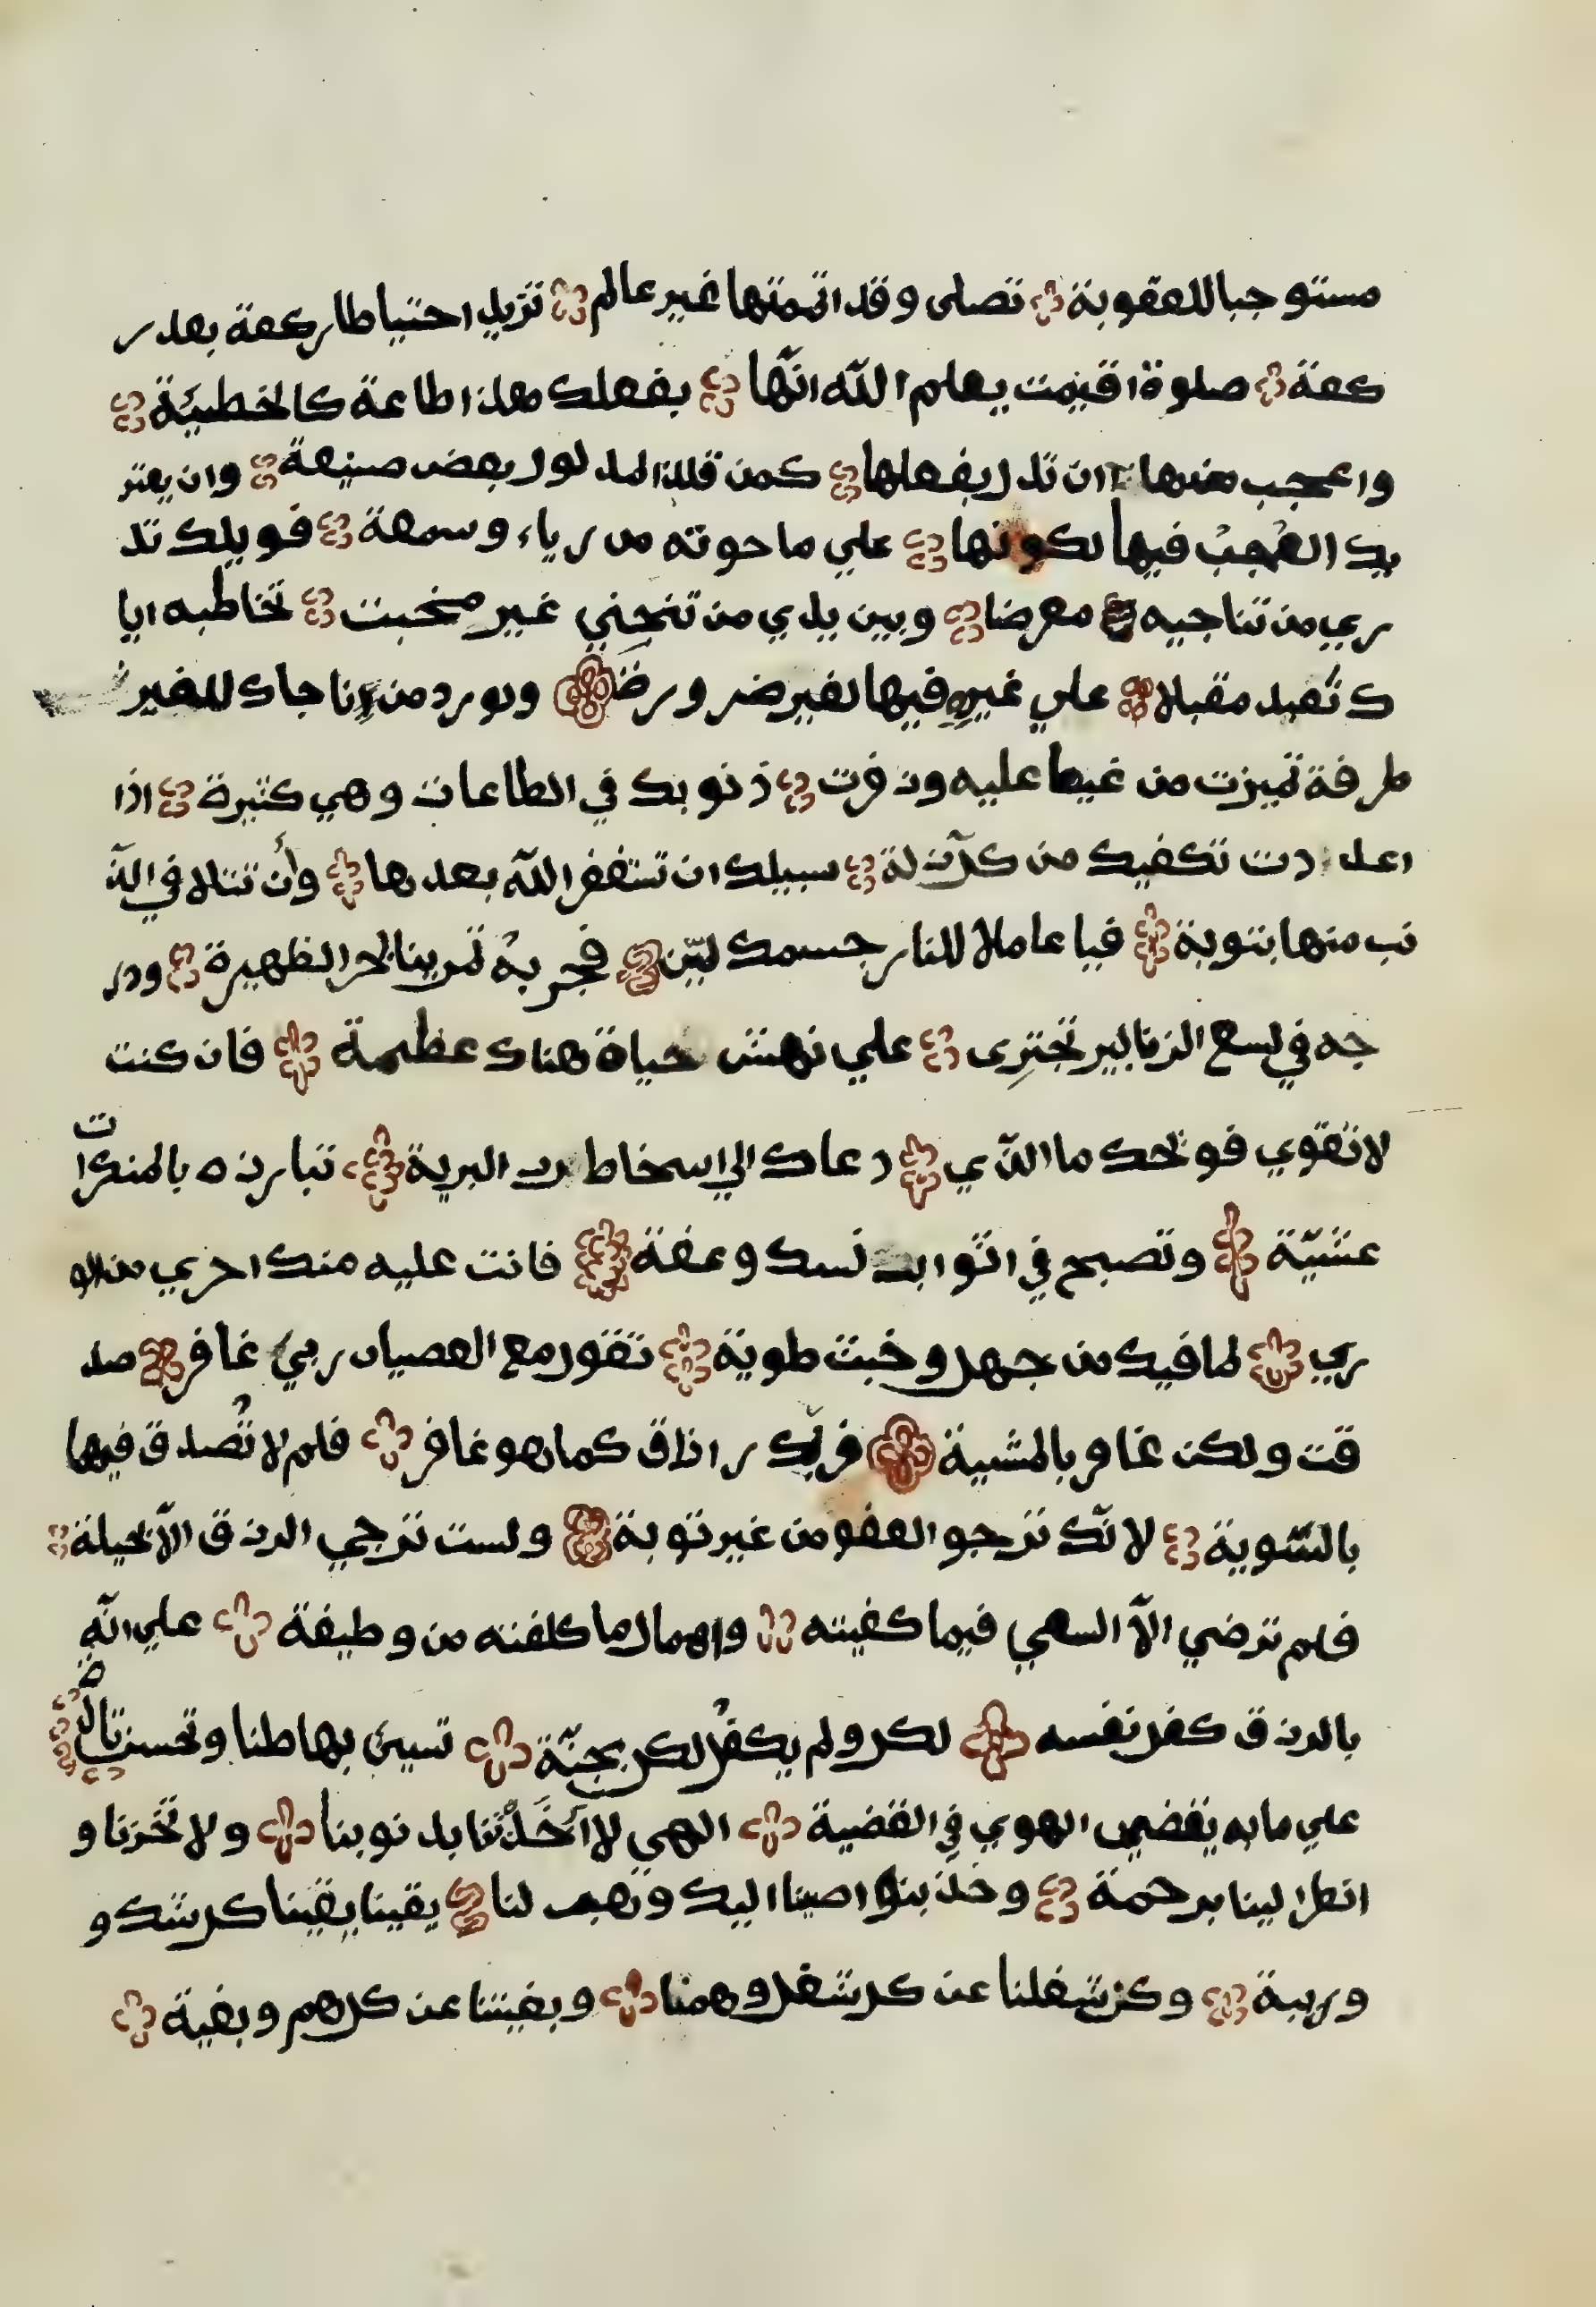 مستوجبا للعقوبة تصلى وقد اتممتها غير عالم تزيد احتياطا ركعة بعد ر
كعة صلوة اقيمت يعلم الله انّها بفعلك هذا طاعة كالخطيئة
واعجب منها ان تدل بفعلها كمن قلد المدلول بعض صنيعة وان يعتر
يك العجب فيها لكونها علي ما حوته من رياء وسمعة فويلك تد
ري من تناجيه معرضا وبين يدي من تنحني غير مخبت تخاطبه ايا
ك نعبد مقبلا علي غيره فيها لغير ضرورة ولو رد من ناجاك للغير
طرفة تميزت من غيظ عليه وغرت ذنوبك في الطاعات وهي كثيرة اذا
اعددت تكفيك من كل زلة سبيلك ان تستغفر الله بعدها وأن تتلافي الذّ
نب منها بتوبة فيا عاملا للنار جسمك ليّن فجربه تمرينا لحر الظهيرة ودر
جه في لسع الزنابير تجتري علي نهش حياة هناك عظيمة فان كنت
لا تقوي فويحك ما الذّي دعاك الي اسخاط رب البرية تبارزه بالمنكرات
عشيّة وتصبح في اثواب نسك وعفة فانت عليه منك اجري من الو
ري لما فيك من جهل وخبث طوية تقول مع العصيان ربي غافر صد
قت ولكن غافر بالمشية فربّك رزاق كما هو غافر فلم لا تُصدق فيها
بالسّوية لانّك ترجو العفو من غير توبة ولست ترجي الرزق الاّ بحيلة
فلم ترضي الاّ السعي فيما كفيته واهمال ما كلفته من وظيفة علي انّه
بالرزق كفل نفسه لكل ولم يكفُل لكل بجنّة تسيئ بها طنا وتحسن تا
علي ما به يقضي الهوي في القضية الهي لا اَخَذْتنا بذنوبنا ولا تخزنا و
انظر لينا برحمة وخذ بنواصينا اليك وهب لنا يقينا يقينا كل شك و
وريبة وكن شغلنا عن كل شغل وهمنا وبغيتنا عن كل هم وبغية